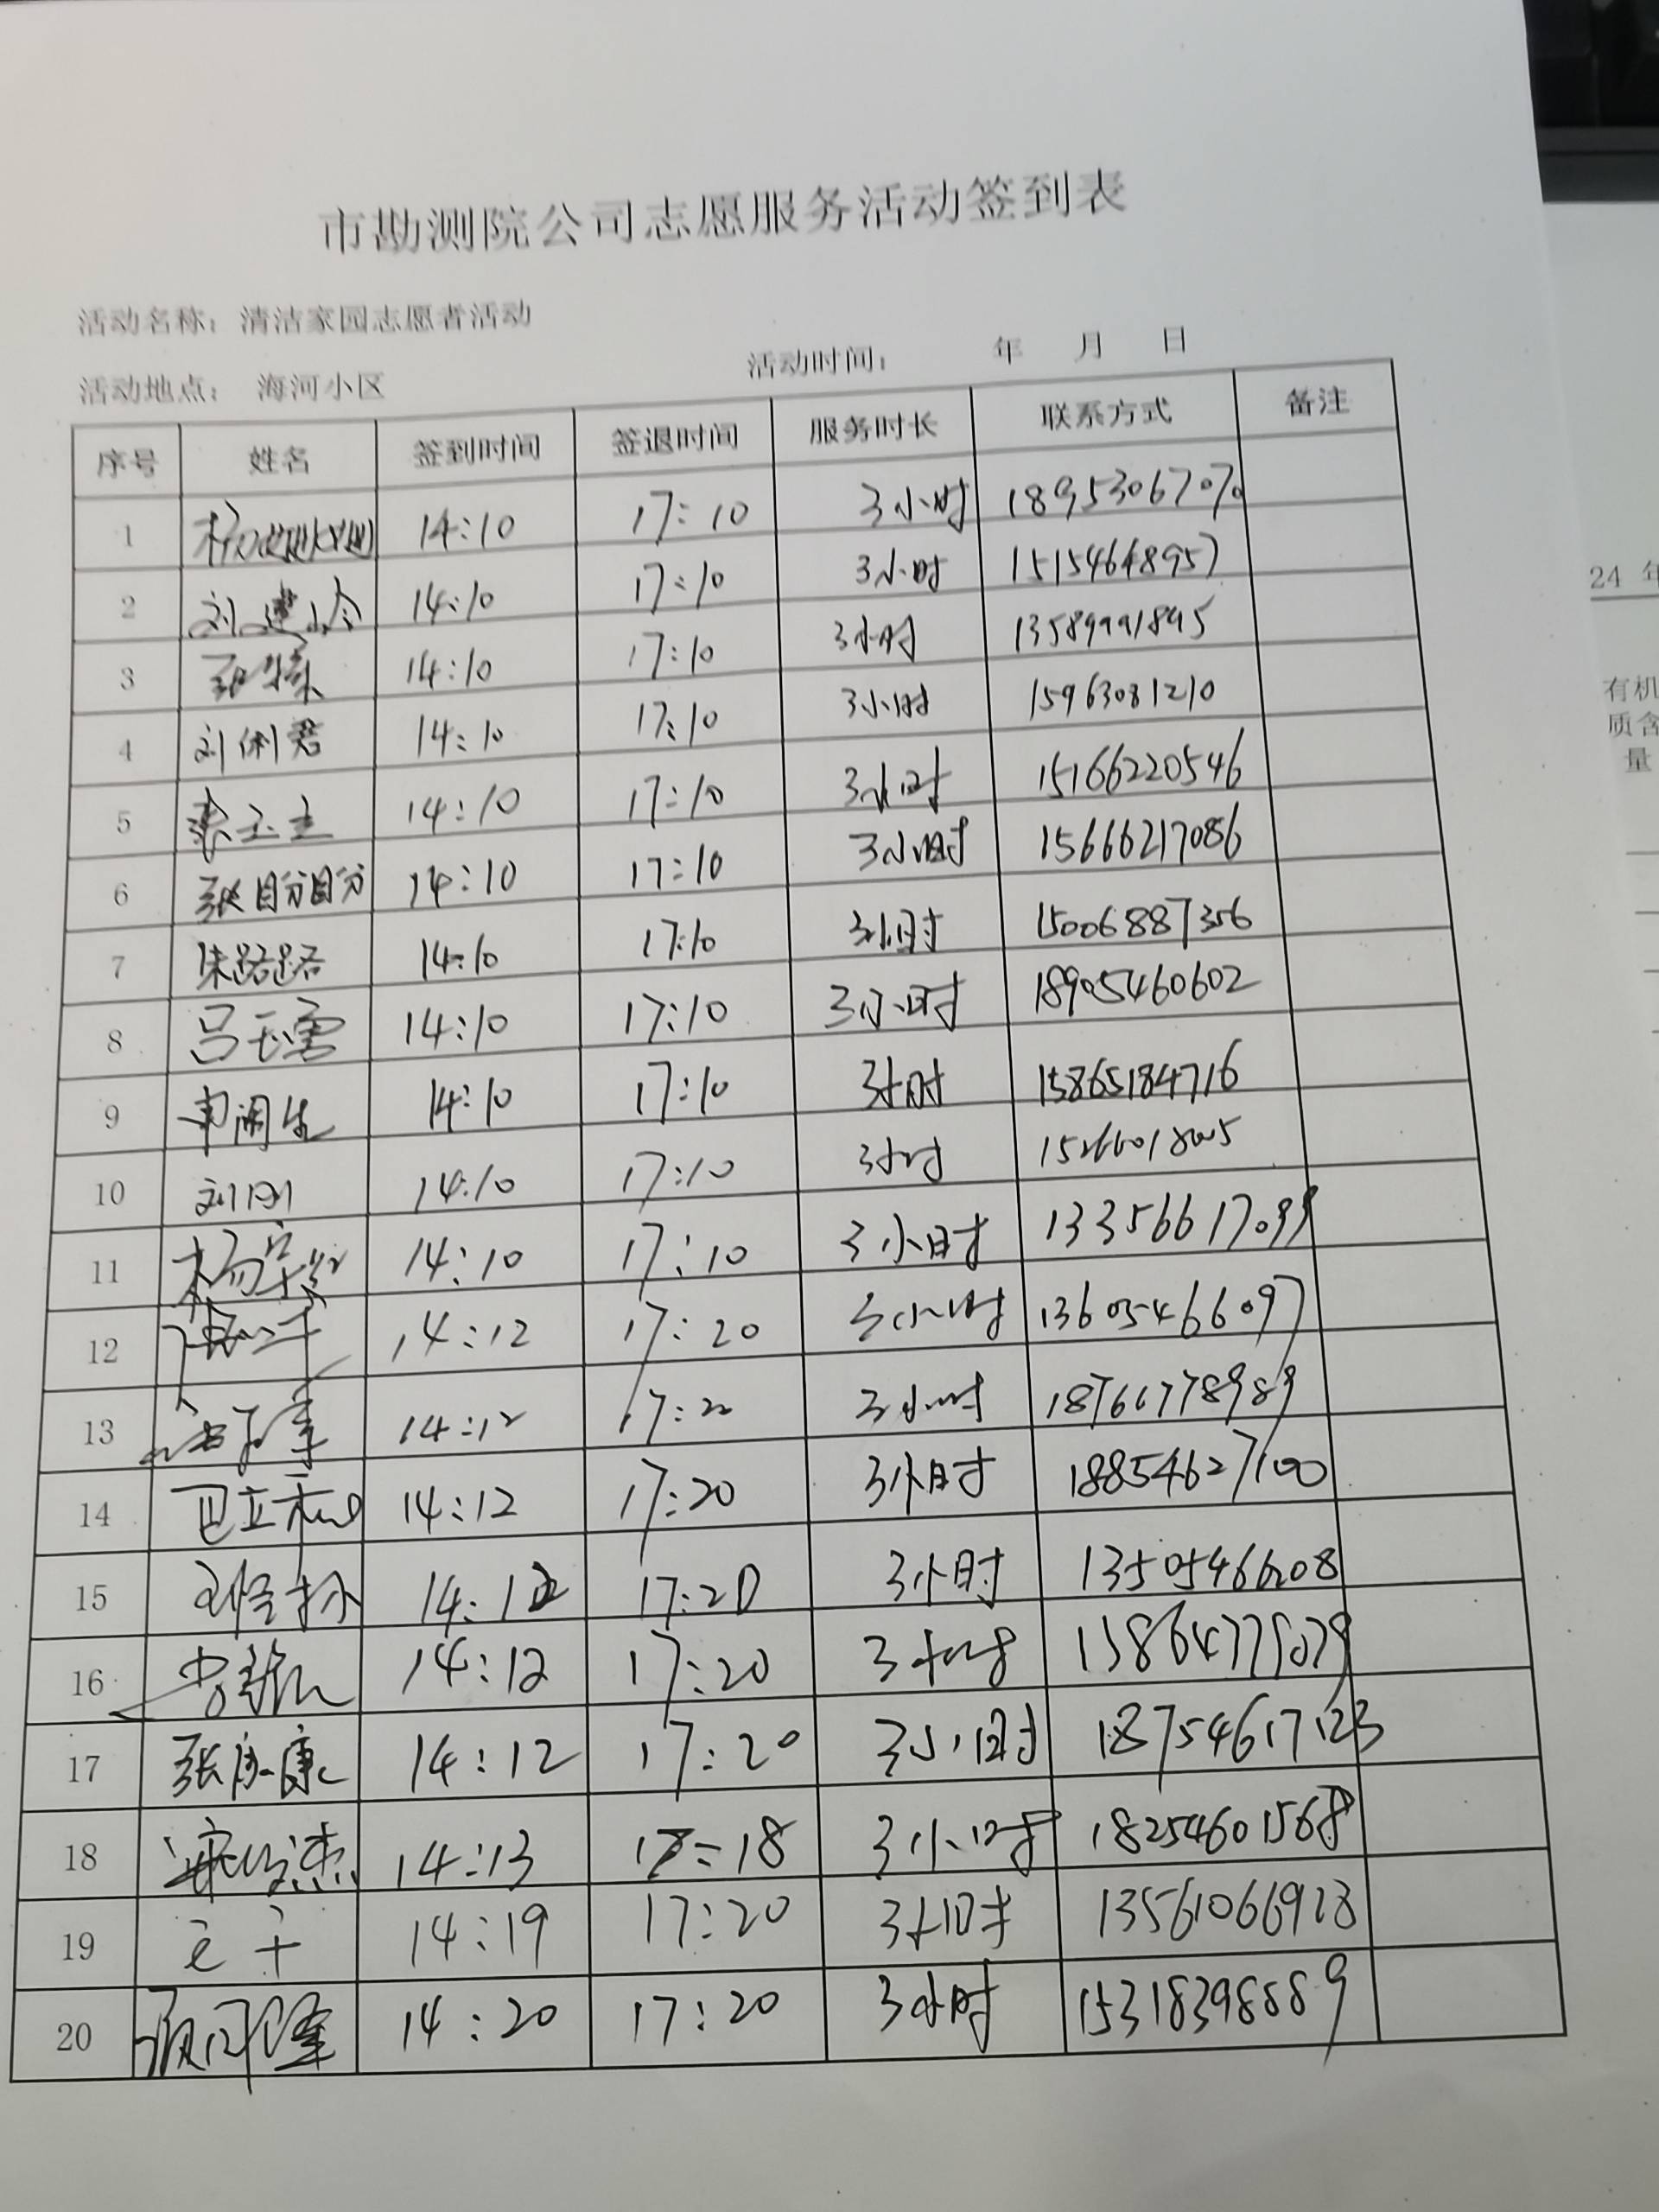 市勘测院公司志愿服务活动签到表
活动名称：清洁家园志愿者活动
活动地点： 海河小区 活动时间： 年 月 日
序号 姓名 签到时间 签退时间 服务时长 联系方式 备注
1 14:10 17:10 3小时 18953067070
2 14:10 17:10 3小时 15154648957
3 14:10 17:10 3小时 13589991895
4 刘俐君 14:10 17:10 3小时 15963081210
5 14:10 17:10 3小时 15166220546
6 张盼盼 14:10 17:10 3小时 15666217086
7 朱路路 14:10 17:10 3小时 15006887356
8 吕玉雪 14:10 17:10 3小时 18905460602
9 14:10 17:10 3小时 15865184716
10 刘刚 14:10 17:10 3小时
11 14:10 17:10 3小时 13356617099
12 14:12 17:20 3小时 13605466097
13 14:12 17:20 3小时 18766778989
14 14:12 17:20 3小时 18854627100
15 14:12 17:20 3小时 13505466208
16 14:12 17:20 3小时
17 14:12 17:20 3小时 18754617123
18 14:13 17:18 3小时 18254601568
19 14:19 17:20 3小时 13561066928
20 14:20 17:20 3小时 15318398889
24 年
有机
质含
量